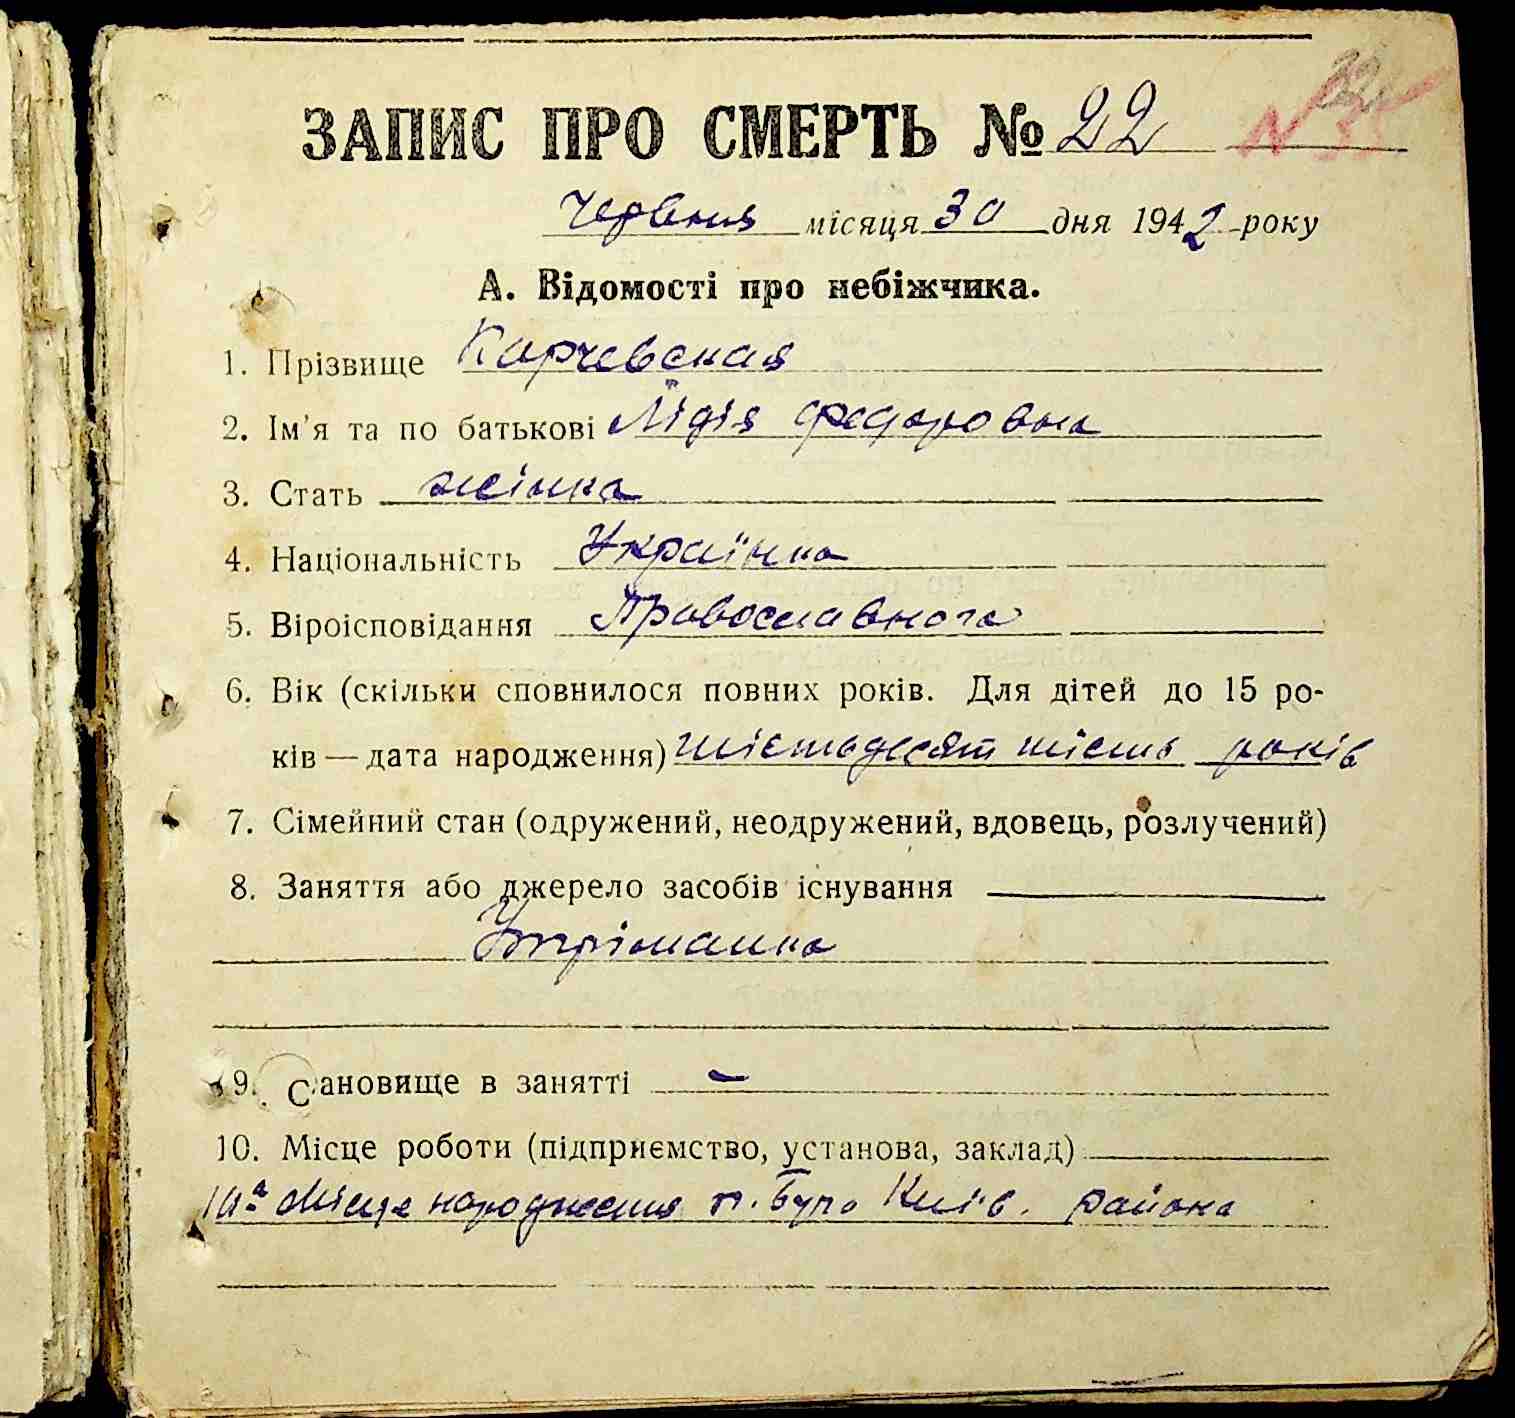 ЗАПИС ПРО СМЕРТЬ № 22
№ 35
Червня місяця 30 дня 1942 року
А. Відомості про небіжчика.
1. Прізвище Карчевская
2. Ім'я та по батькові Лідія Федоровна
3. Стать жінка
4. Національність Українка
5. Віроісповідання Православного
6. Вік (скільки сповнилося повних років. Для дітей до 15 ро-
ків — дата народження) шістьдесят шість років
7. Сімейний стан (одружений, неодружений, вдовець, розлучений)
8. Заняття або джерело засобів існування
Утріманка
9. Становище в занятті –
10. Місце роботи (підприємство, установа, заклад)
10а Місце народження Київ. района